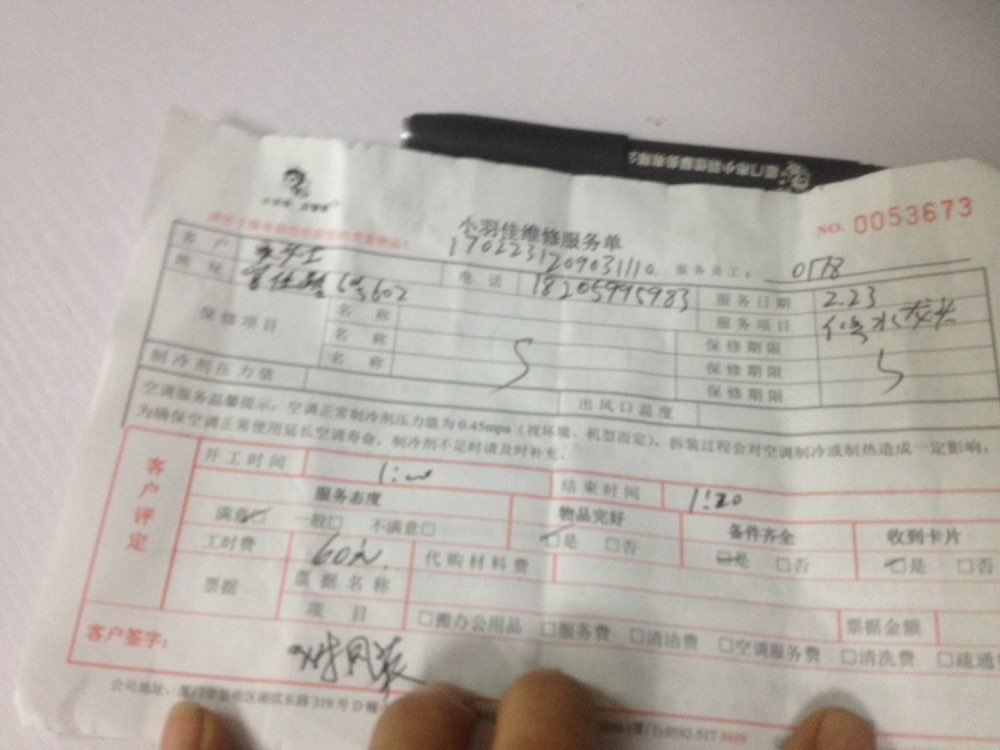 小羽佳维修服务单
NO. 0053673
1702231209031110
服务员工: 0178
客户
电话 18205995983 服务日期 2.23
地址 6号602
服务项目 水龙头
保修项目 名称 保修期限
名称 保修期限
名称 保修期限
制冷剂压力值 出风口温度
空调服务温馨提示:空调正常制冷剂压力值为0.45mpa(视环境、机型而定),拆装过程会对空调制冷或制热造成一定影响,
为确保空调正常使用延长空调寿命,制冷剂不足时请及时补充。
客户评定
开工时间 1:00 结束时间 1:20
服务态度 物品完好 备件齐全 收到卡片
满意☑ 一般□ 不满意□ ☑是 □否 ☑是 □否 ☑是 □否
工时费 60元 代购材料费
票据 票据名称
项目 □搬办公用品 □服务费 □清洁费 □空调服务费 □清洗费 □疏通
票据金额
客户签字:
公司地址: 319号D幢
0592-517